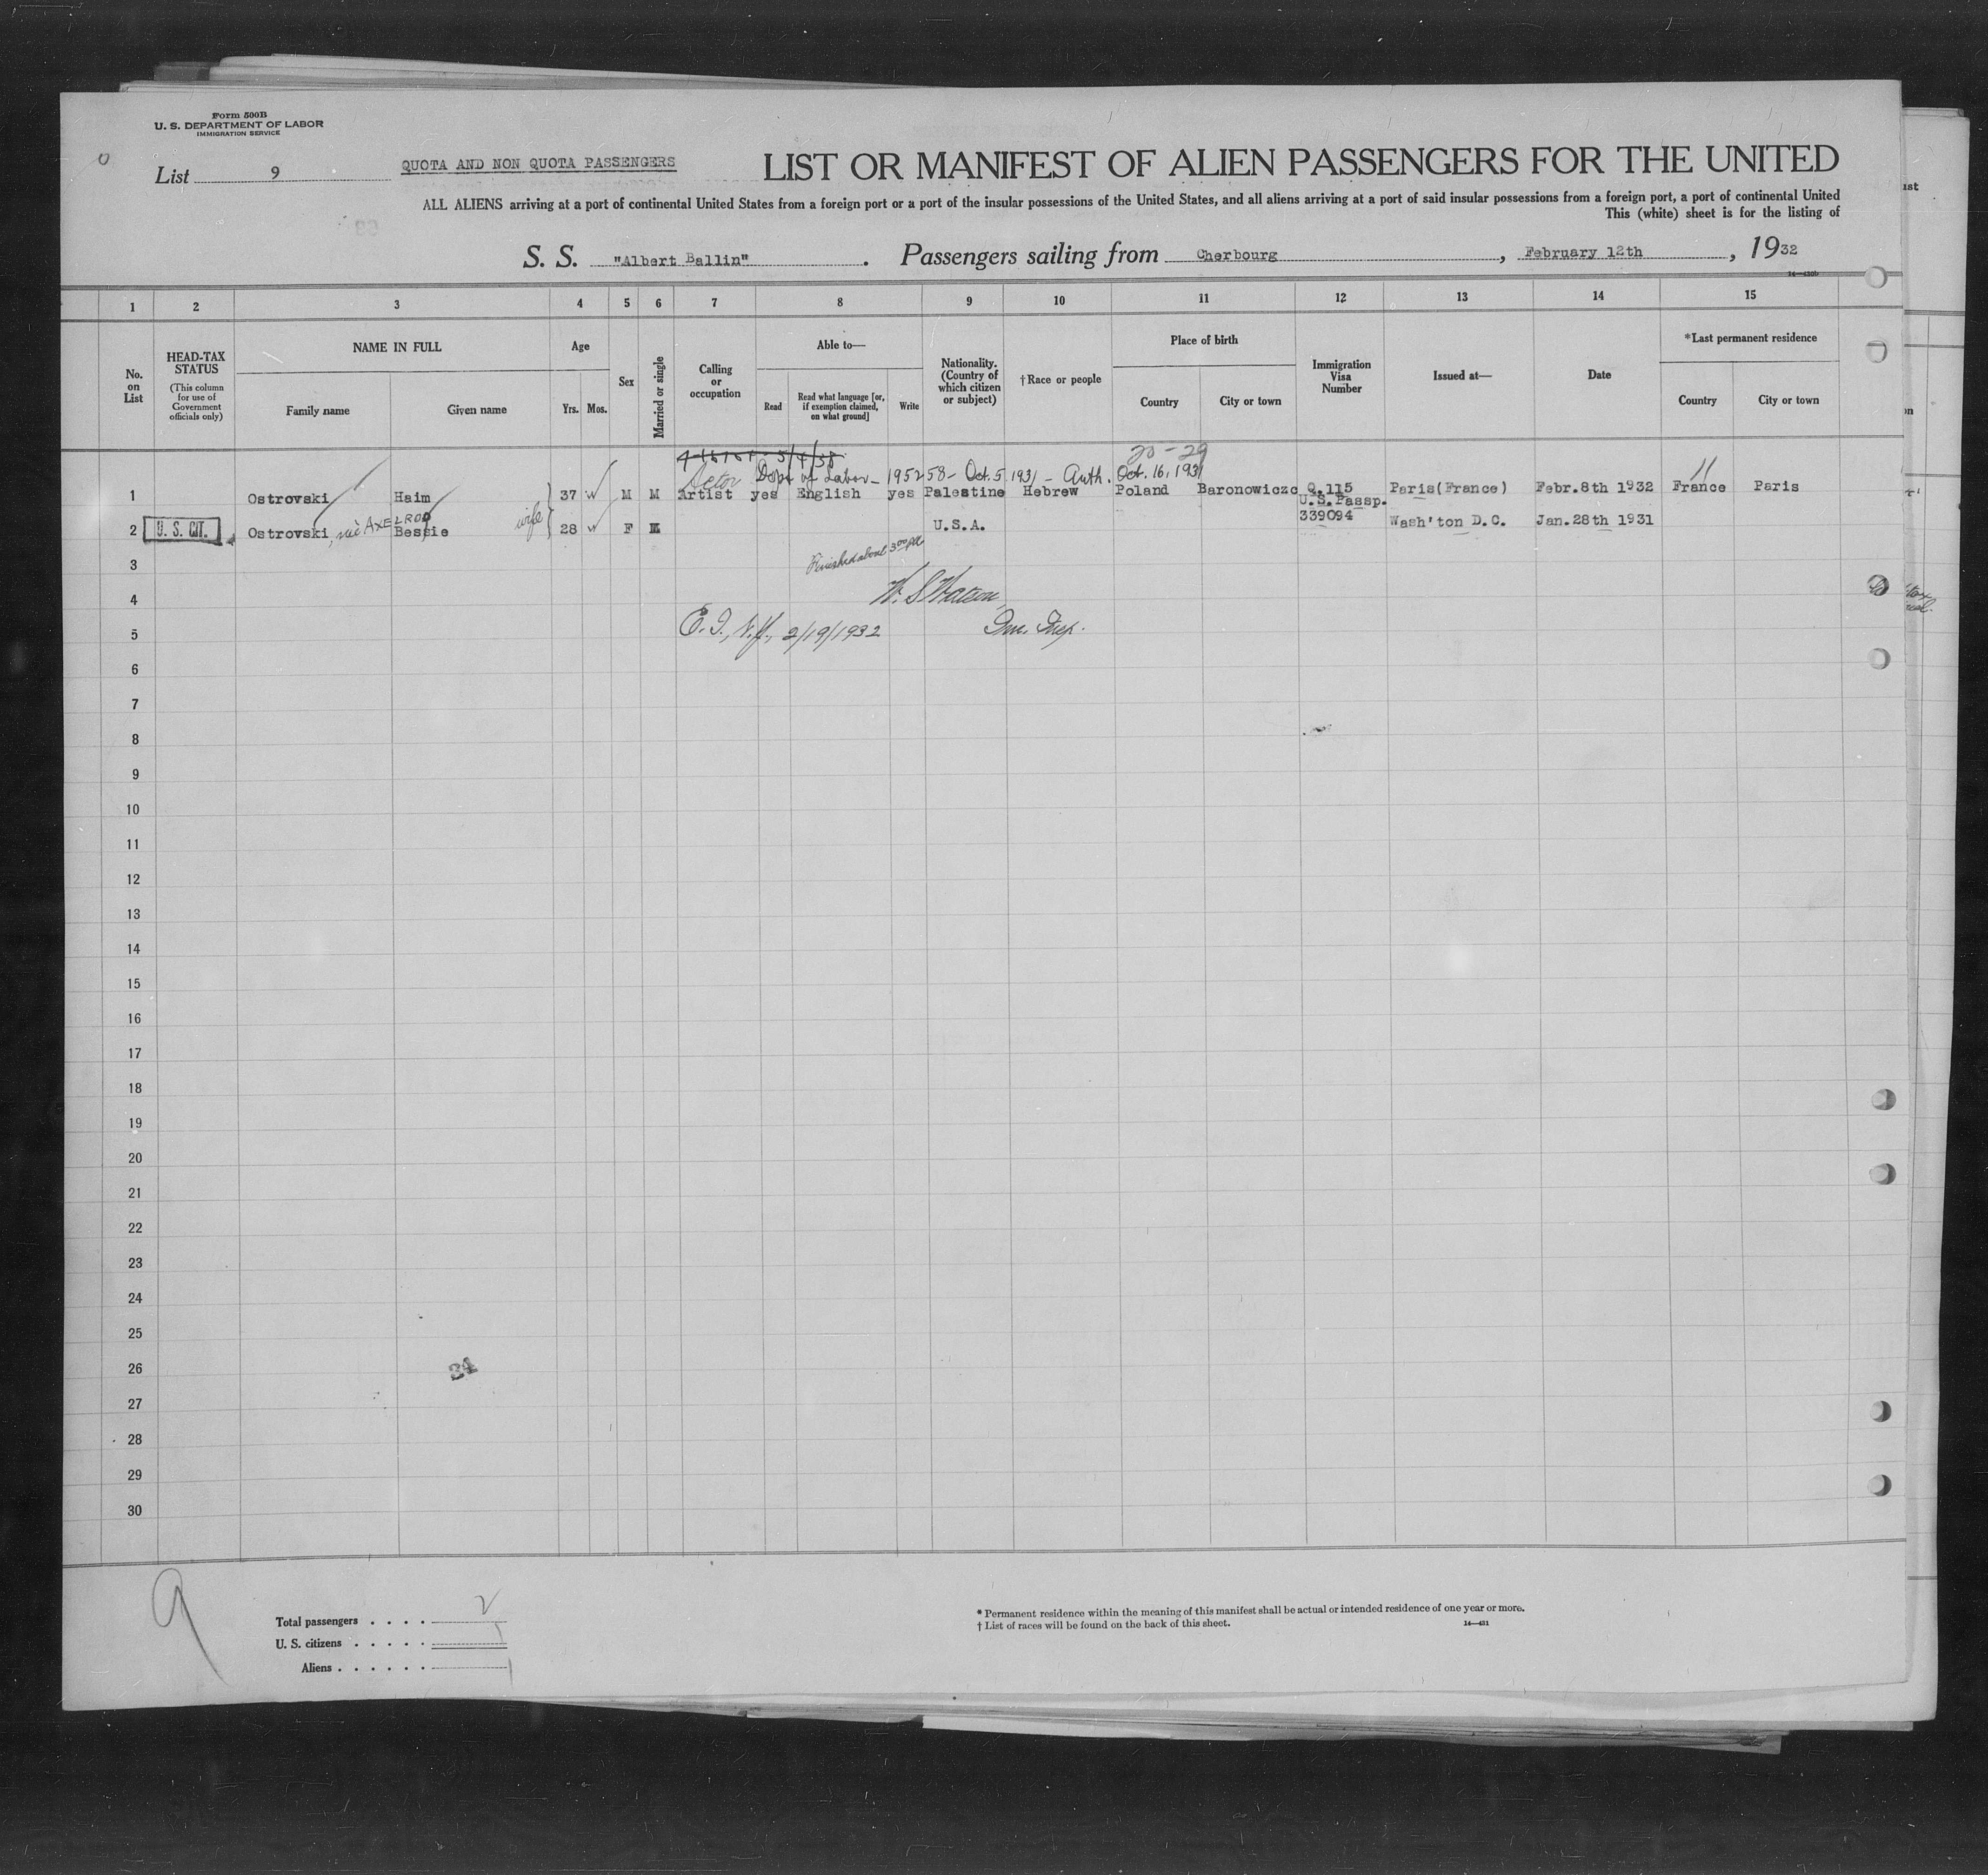 Form 500B
U. S. DEPARTMENT OF LABOR
IMMIGRATION SERVICE
List 9
QUOTA AND NON QUOTA PASSENGERS
LIST OR MANIFEST OF ALIEN PASSENGERS FOR THE UNITED
ALL ALIENS arriving at a port of continental United States from a foreign port or a port of the insular possessions of the United States, and all aliens arriving at a port of said insular possessions from a foreign port, a port of continental United
This (white) sheet is for the listing of
S. S. "Albert Ballin" . Passengers sailing from Cherbourg , February 12th , 1932
1 2 3 4 5 6 7 8 9 10 11 12 13 14 15
No. on List
HEAD-TAX STATUS (This column for use of Government officials only)
NAME IN FULL
Family name Given name
Age
Yrs. Mos.
Sex
Married or single
Calling or occupation
Able to—
Read Read what language [or, if exemption claimed, on what ground] Write
Nationality. (Country of which citizen or subject)
†Race or people
Place of birth
Country City or town
Immigration Visa Number
Issued at—
Date
*Last permanent residence
Country City or town
20-29
Actor Dept of Labor - 195258 - Oct. 5 1931 - Auth. Oct. 16, 1931
1 Ostrovski Haim 37 M M Artist yes English yes Palestine Hebrew Poland Baronowiczc Q.115 Paris(France) Febr.8th 1932 France Paris
2 U. S. CIT. Ostrovski, née AXELROD Bessie wife 28 F M U.S.A. U.S.Passp. 339094 Wash'ton D.C. Jan.28th 1931
3
Finished about 3 00 PM
4
W. S. Watson,
5
E. I., N.Y., 2/19/1932 Imm. Insp.
6
7
8
9
10
11
12
13
14
15
16
17
18
19
20
21
22
23
24
25
26
34
27
28
29
30
9
Total passengers . . . . 2
U. S. citizens . . . . . 1
Aliens . . . . . . 1
* Permanent residence within the meaning of this manifest shall be actual or intended residence of one year or more.
† List of races will be found on the back of this sheet.
14—431